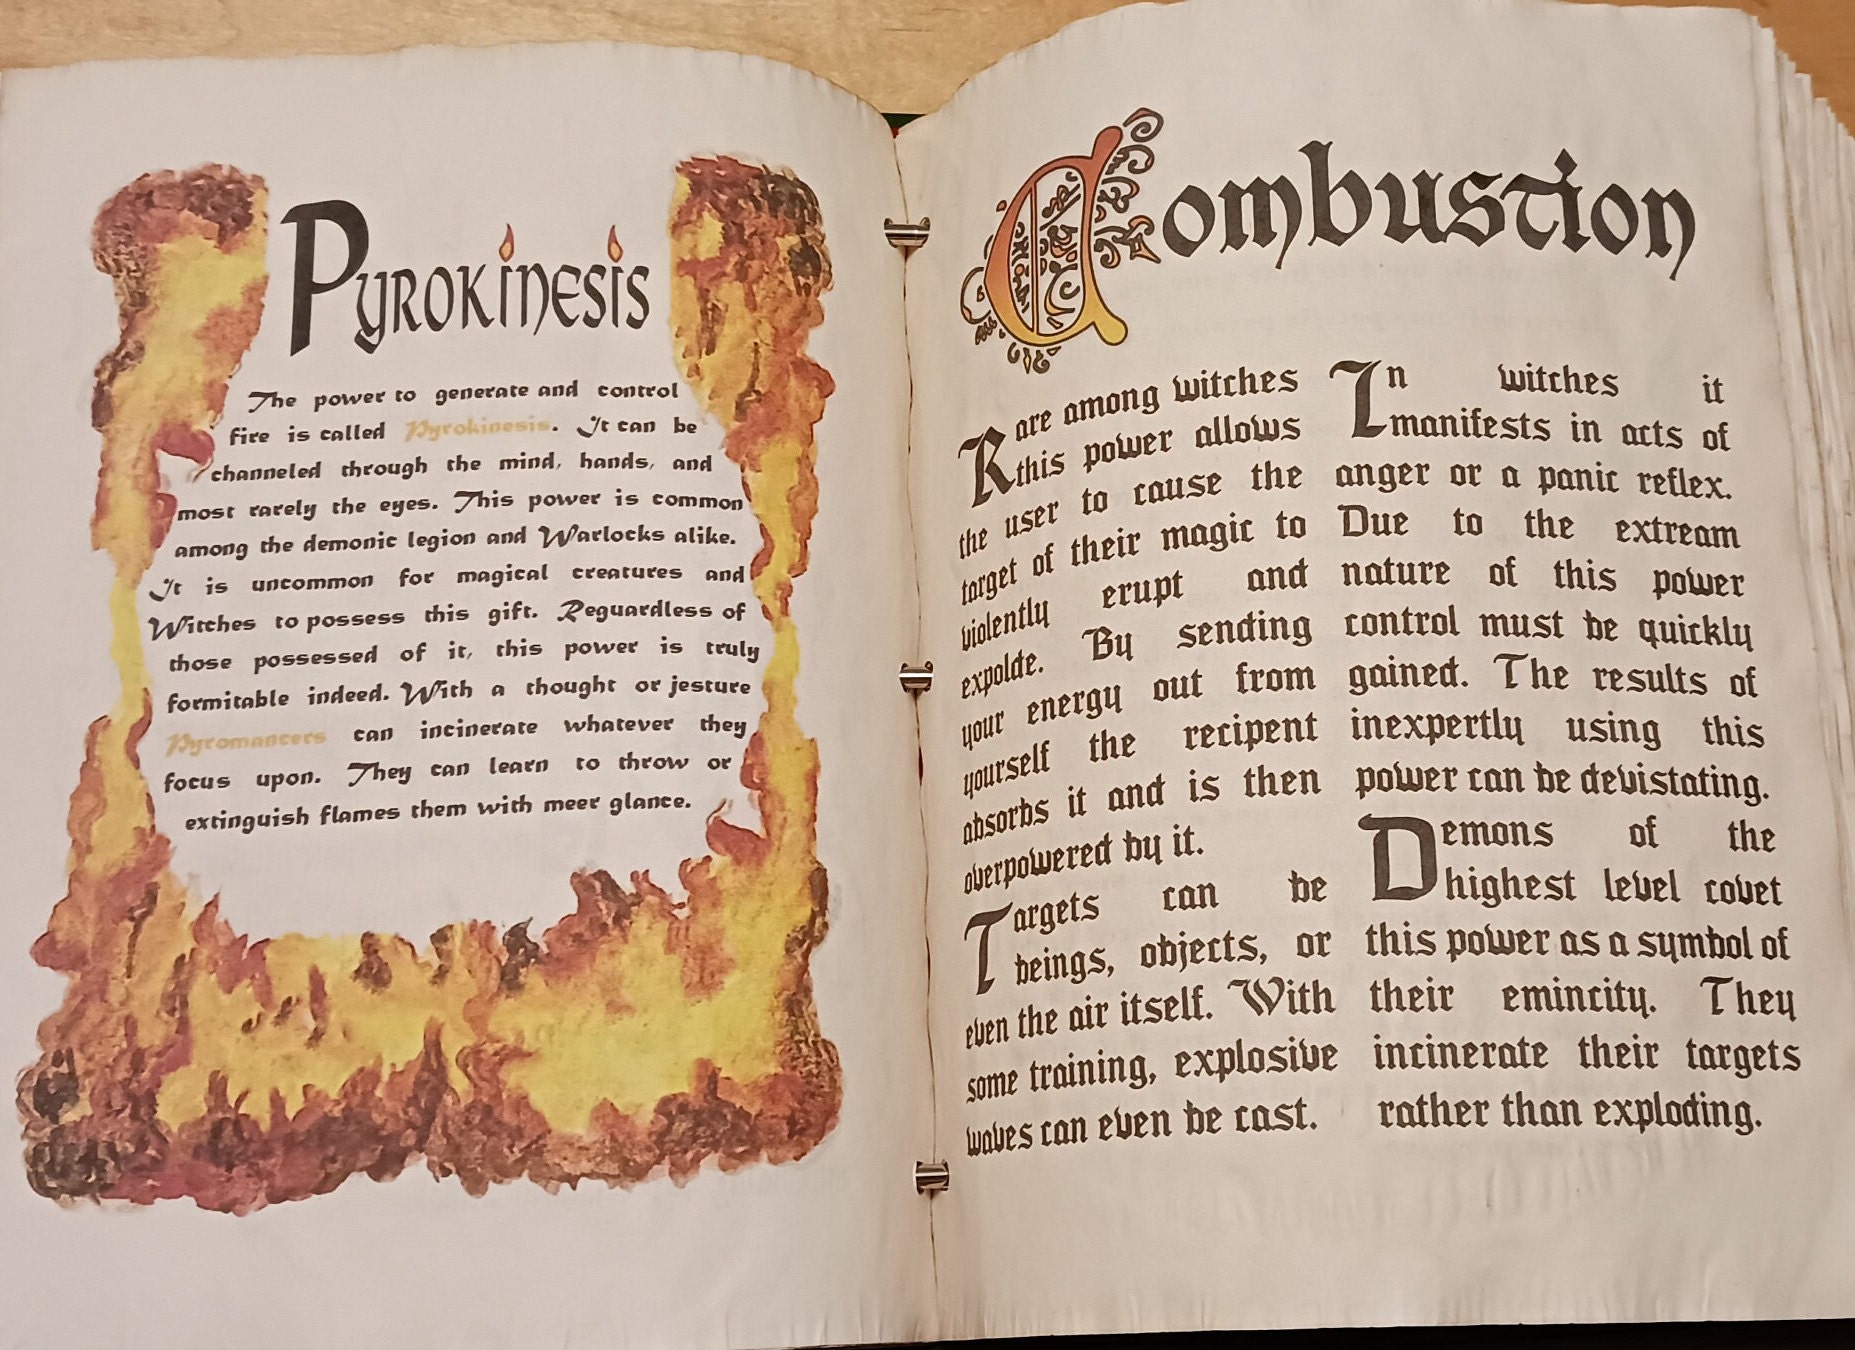 Pyrokinesis
The power to generate and control
fire is called Pyrokinesis. It can be
channeled through the mind, hands, and
most rarely the eyes. This power is common
among the demonic legion and Warlocks alike.
It is uncommon for magical creatures and
Witches to possess this gift. Reguardless of
those possessed of it, this power is truly
formitable indeed. With a thought or jesture
Pyromancers can incinerate whatever they
focus upon. They can learn to throw or
extinguish flames them with meer glance.
Combustion
Rare among witches
this power allows
the user to cause the
target of their magic to
violently erupt and
expolde. By sending
your energy out from
yourself the recipent
absorbs it and is then
overpowered by it.
Targets can be
beings, objects, or
even the air itself. With
some training, explosive
waves can even be cast.
In witches it
manifests in acts of
anger or a panic reflex.
Due to the extream
nature of this power
control must be quickly
gained. The results of
inexpertly using this
power can be devistating.
Demons of the
highest level covet
this power as a symbol of
their emincity. They
incinerate their targets
rather than exploding.